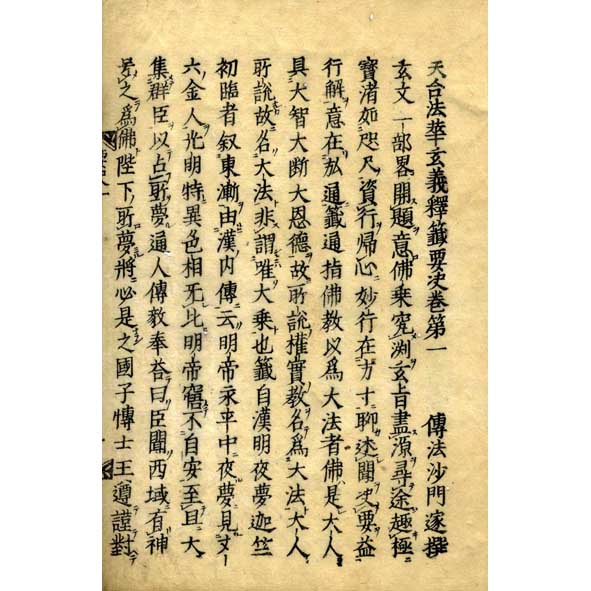 天台法華玄義釋籤要决卷第一　傳法沙門邃撰
玄文一部畧開題意佛乘究渕玄肯盡源尋途趣極
寶渚如咫尺資行帰心妙行在方寸聊述闘决要益
行解意在弘通籤通指佛教以為大法者佛是大人
具大智大断大恩德故所說權實教名為大法大人
所說故名大法非謂唯大乘也籤自漢明夜夢迦竺
初臨者叙東漸由漢内傳云明帝永平中夜夢見丈
六金人光明特異色相无比明帝寤不自安至旦大
集群臣以占所夢通人傳毅奉荅曰臣聞西域有神
号之為佛陛下所夢將必是之國子愽士王遵謹對